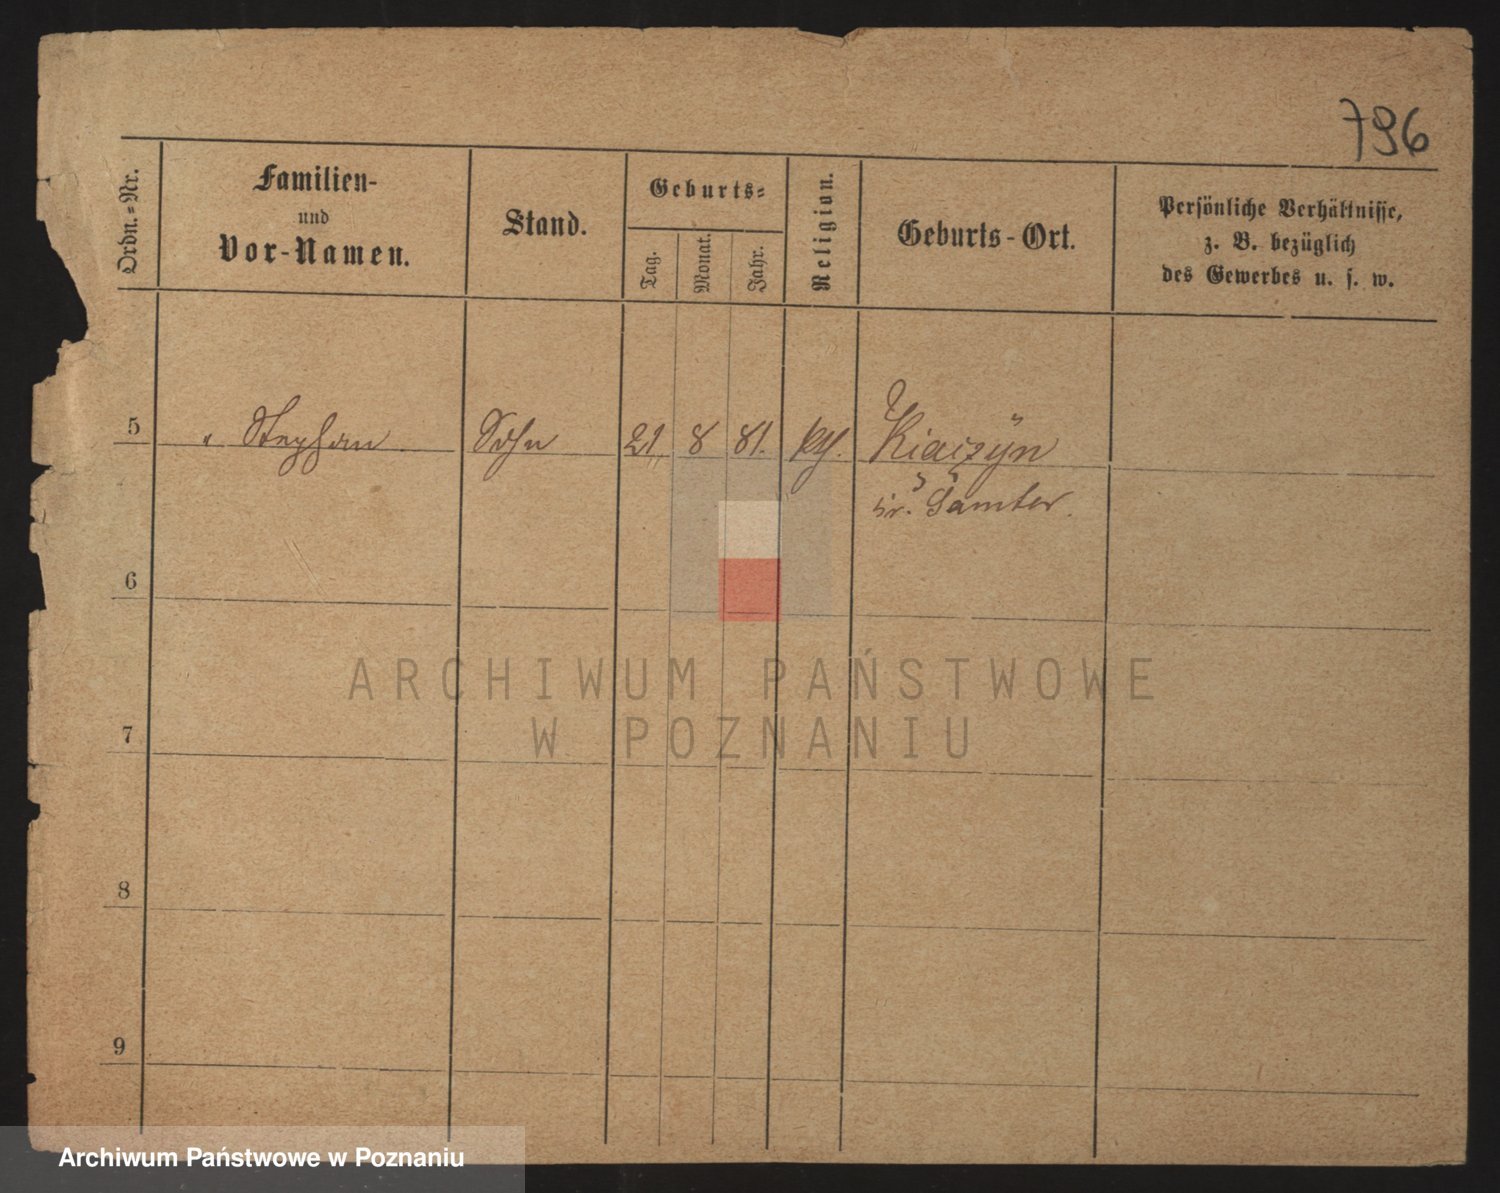 796
Ordn.-Nr.
Familien-
und
Vor-Namen.
Stand.
Geburts-
Tag.
Monat.
Jahr.
Religion.
Geburts-Ort.
Persönliche Verhältnisse,
z. B. bezüglich
des Gewerbes u. s. w.
5 " Stephan Sohn 21 8 81. kth. Kiaczyn
Kr. Samter.
6
7
8
9
ARCHIWUM PAŃSTWOWE
W POZNANIU
Archiwum Państwowe w Poznaniu